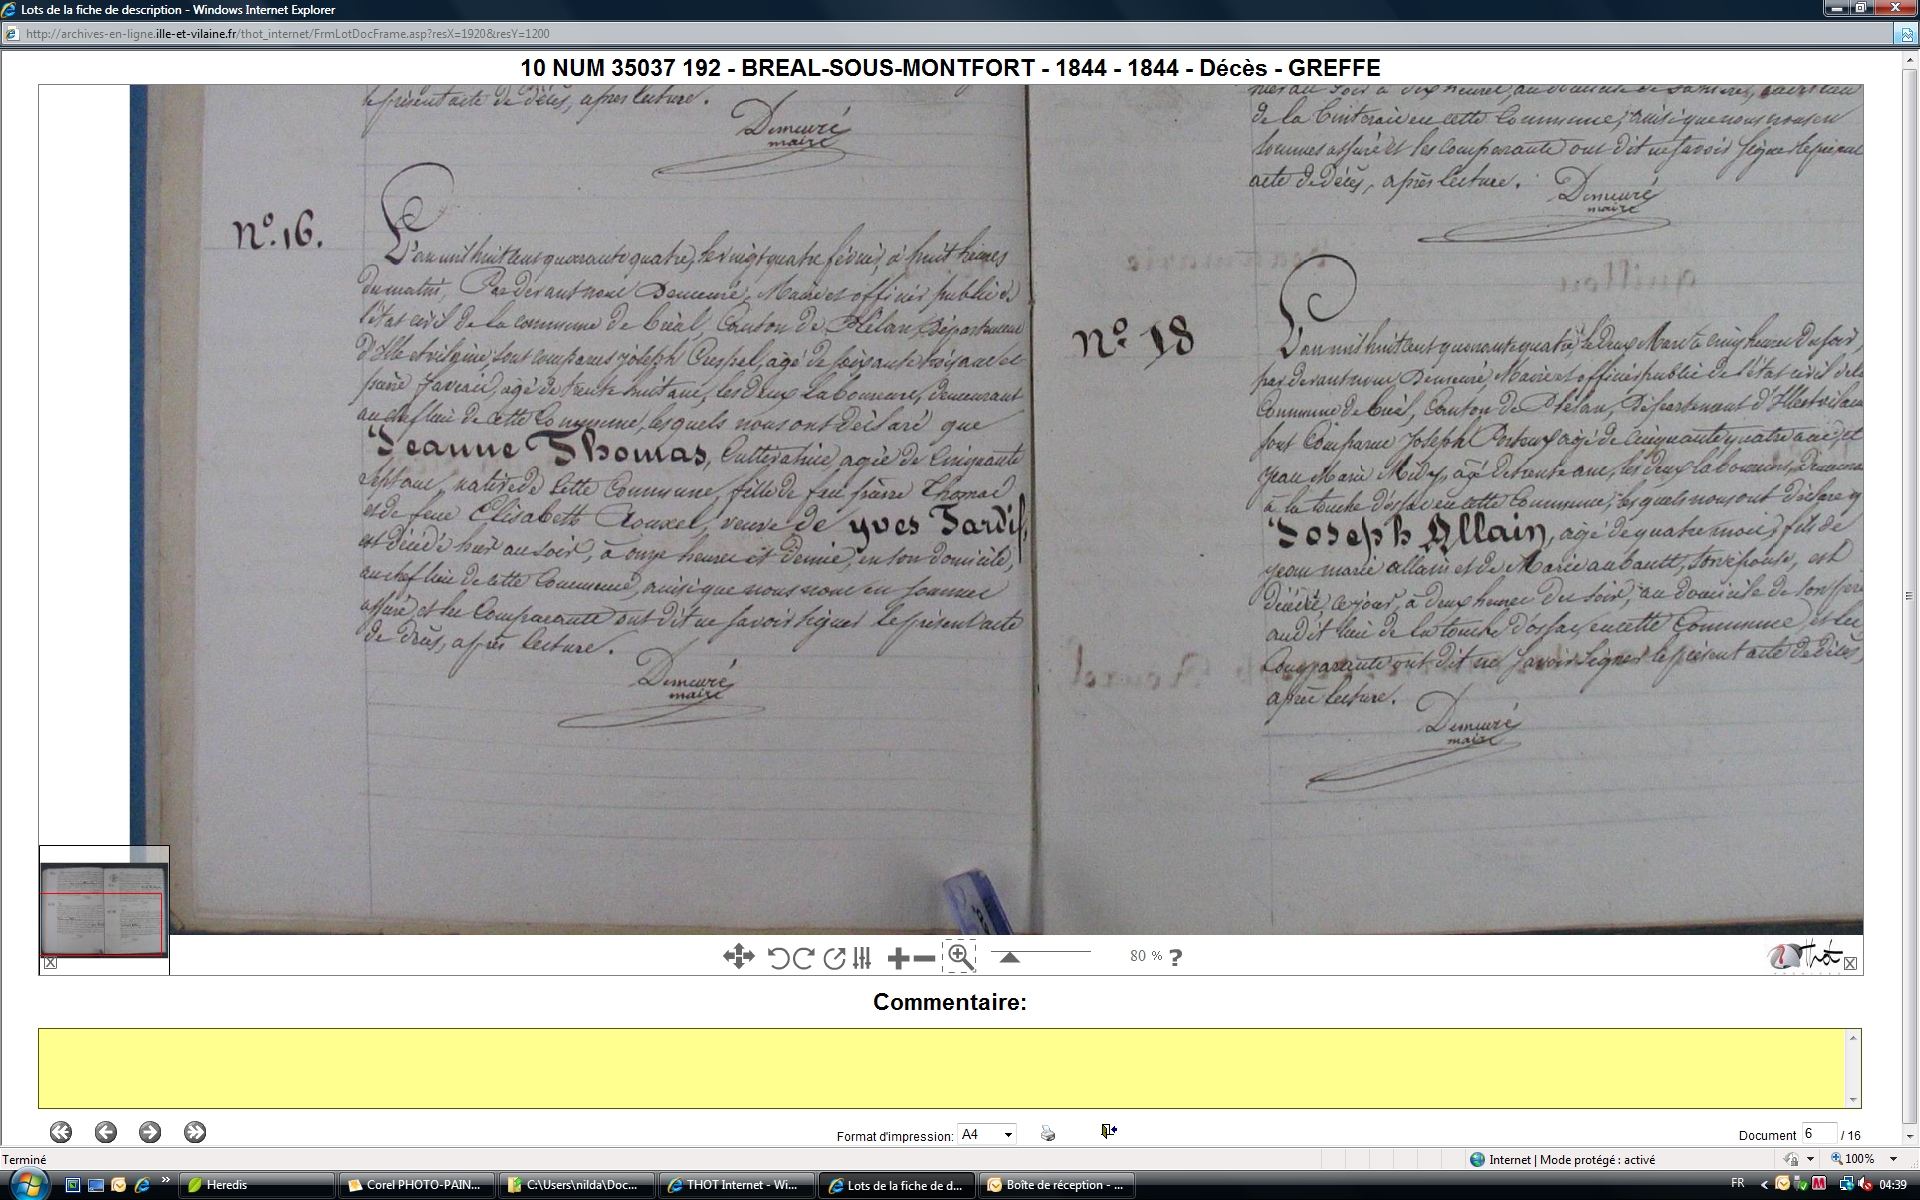 Lots de la fiche de description - Windows Internet Explorer
http://archives-en-ligne.ille-et-vilaine.fr/thot_internet/FrmLotDocFrame.asp?resX=1920&resY=1200
10 NUM 35037 192 - BREAL-SOUS-MONTFORT - 1844 - 1844 - Décès - GREFFE
le présent acte de décès, après lecture.
Demeuré
maire
n.º 16.
L'an mil huit cent quarante quatre, le vingt quatre février, à huit heures
du matin, Par devant nous Demeuré, Maire et officier public de
l'état civil de la commune de Bréal, Canton de Plélan, Département
d'Ille et vilaine, sont comparus joseph Crespel, agé de soixante trois ans et
pierre agé de trente huit ans, les deux laboureurs, demeurant
au chef lieu de cette Commune, lesquels nous ont déclaré que
Jeanne Thomas, Cultivatrice, agée de Cinquante
sept ans, native de cette Commune, fille de feu pierre Thomas
et de feue Elisabeth Rouxel, veuve de yves Tardif,
est décédé hier au soir, à onze heures et demie, en son domicile,
au chef lieu de cette Commune, ainsi que nous nous en sommes
assuré et les Comparants ont dit ne savoir signer le présent acte
de décès, après lecture.
Demeuré
maire
de la en cette Commune, ainsi que nous nous en
sommes assuré et les comparants ont dit ne savoir signer le présent
acte de décès, après lecture.
Demeuré
maire
n.º 18
L'an mil huit cent quarante quatre, le deux Mars à cinq heures du soir,
par devant nous Demeuré, Maire et officier public de l'état civil de la
Commune de Bréal, Canton de Plélan, Département d'Ille et vilaine
sont Comparus Joseph agé de Cinquante quatre ans, et
jean Marie agé de trente ans, les deux laboureurs,
à la touche en cette Commune, lesquels nous ont déclaré q
Joseph Allain, agé de quatre mois, fils de
jean marie allain et de Marie aubault, son épouse, est
décédé ce jour, à deux heures du soir, au domicile de son père
au dit lieu de la touche en cette Commune, et les
Comparants ont dit ne savoir signer le présent acte de décès,
après lecture.
Demeuré
maire
80 % ?
Thot
Commentaire:
Format d'impression: A4
Document 6 / 16
Terminé
Internet | Mode protégé : activé
100%
Heredis
Corel PHOTO-PAIN...
C:\Users\nilda\Doc...
THOT Internet - Wi...
Lots de la fiche de d...
Boîte de réception - ...
FR
04:39